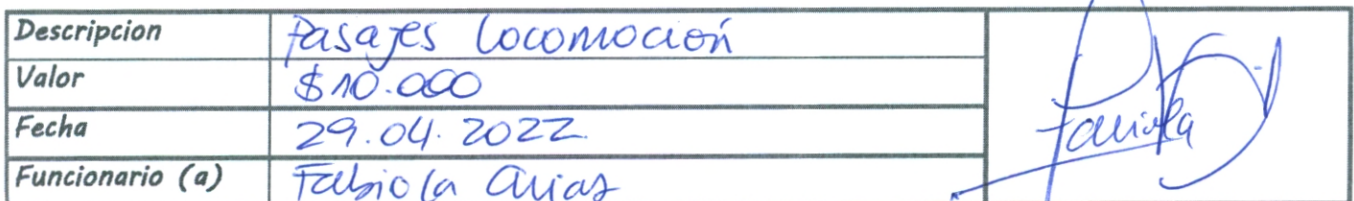 Descripcion Pasajes Locomoción
Valor $10.000
Fecha 29.04.2022
Funcionario (a) Fabiola Arias
Fabiola